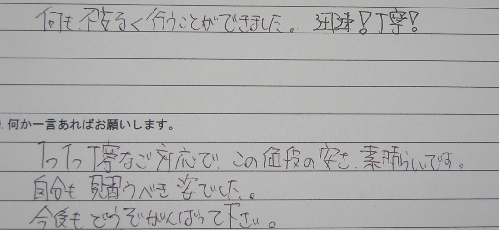 何も、不安なく行うことができました。 迅速！丁寧！
何か一言あればお願いします。
1つ1つ丁寧なご対応で、この価段の安さ、素晴らしいです。
自分も見習うべき姿でした。
今後もどうぞがんばって下さい。